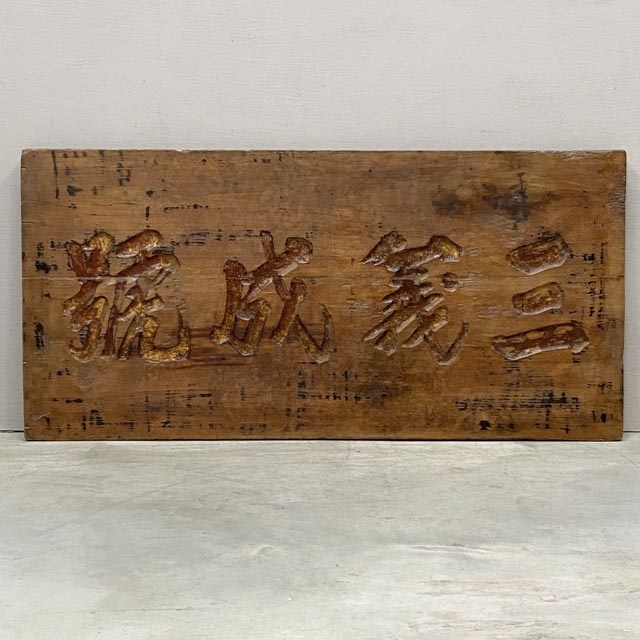 三義成號